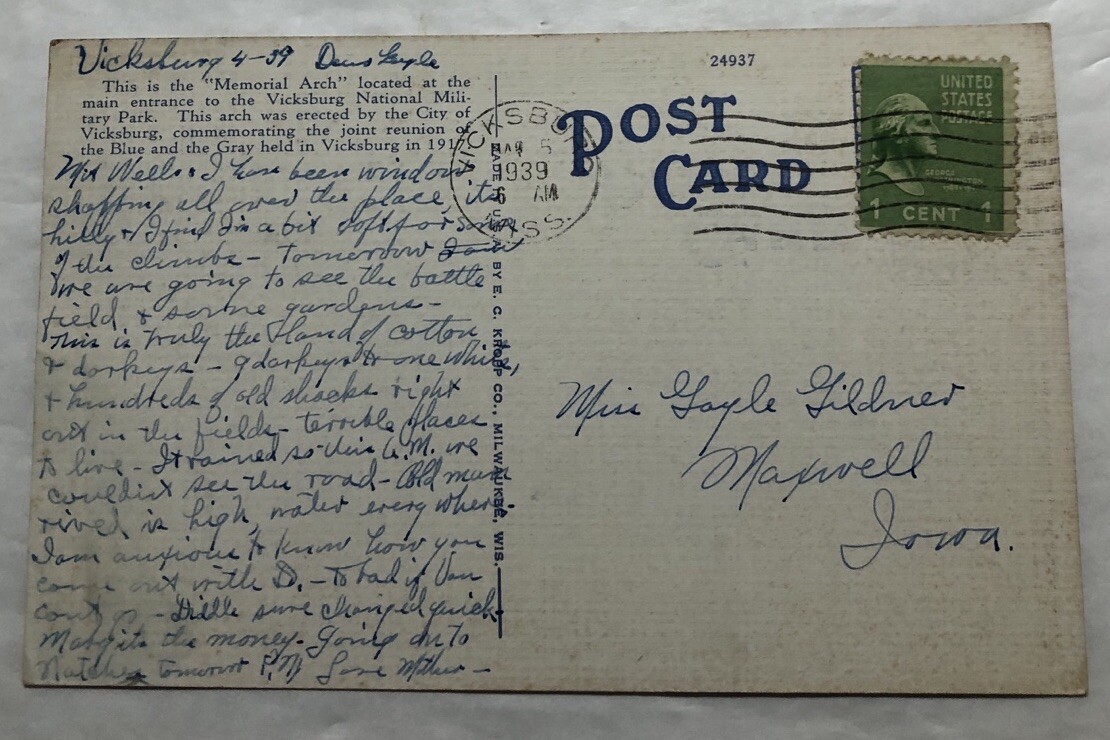 Vicksburg 4-39 Dear Gayle
This is the "Memorial Arch" located at the
main entrance to the Vicksburg National Mili-
tary Park. This arch was erected by the City of
Vicksburg, commemorating the joint reunion of
the Blue and the Gray held in Vicksburg in 191
Mrs Wells & I have been window
shopping all over the place, its
hilly & I find I'm a bit soft for some
of the climbs - tomorrow
we are going to see the battle
field & some gardens -
This is truly the land of cotton
& darkeys - 9 darkeys to one white,
& hundreds of old shacks right
out in the fields - terrible places
to live - It rained so this A.M. we
couldn't see the road - Old
river is high, water every where.
I am anxious to know how you
come out with D. - To bad if Van
cant go - sure changed quick
the money - Going on to
Natchez tomorrow P.M Love Mother -
24937
POST
CARD
VICKSBURG
MAR 5
1939
6 AM
MISS.
UNITED
STATES
POSTAGE
GEORGE
WASHINGTON
1 CENT 1
BY E. C. KROPP CO., MILWAUKEE, WIS.
Miss Gayle Gildner
Maxwell
Iowa.